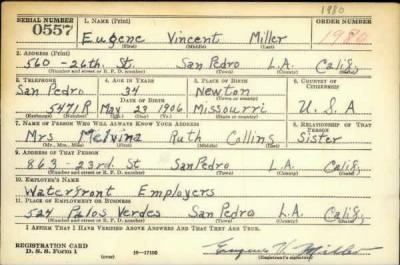 1980
SERIAL NUMBER 1. NAME (Print) ORDER NUMBER
0557 Eugene Vincent Miller 1980
(First) (Middle) (Last)
2. ADDRESS (Print)
560 - 26th. St. San Pedro L.A. Calif.
(Number and street or R. F. D. number) (Town) (County) (State)
3. TELEPHONE 4. AGE IN YEARS 5. PLACE OF BIRTH 6. COUNTRY OF CITIZENSHIP
San Pedro 34 Newton
DATE OF BIRTH (Town or county)
5471R May 29 1906 Missourri U.S.A
(Exchange) (Number) (Mo.) (Day) (Yr.) (State or country)
7. NAME OF PERSON WHO WILL ALWAYS KNOW YOUR ADDRESS 8. RELATIONSHIP OF THAT PERSON
Mrs Melvina Ruth Colling Sister
(Mr., Mrs., Miss) (First) (Middle) (Last)
9. ADDRESS OF THAT PERSON
863 - 23rd. St San Pedro L.A. Calif.
(Number and street or R. F. D. number) (Town) (County) (State)
10. EMPLOYER'S NAME
Waterfront Employers
11. PLACE OF EMPLOYMENT OR BUSINESS
524 Palos Verdes San Pedro L.A. Calif.
(Number and street or R. F. D. number) (Town) (County) (State)
I AFFIRM THAT I HAVE VERIFIED ABOVE ANSWERS AND THAT THEY ARE TRUE.
REGISTRATION CARD
D. S. S. Form 1 (over) 16-17105 Eugene V. Miller
(Registrant's signature)